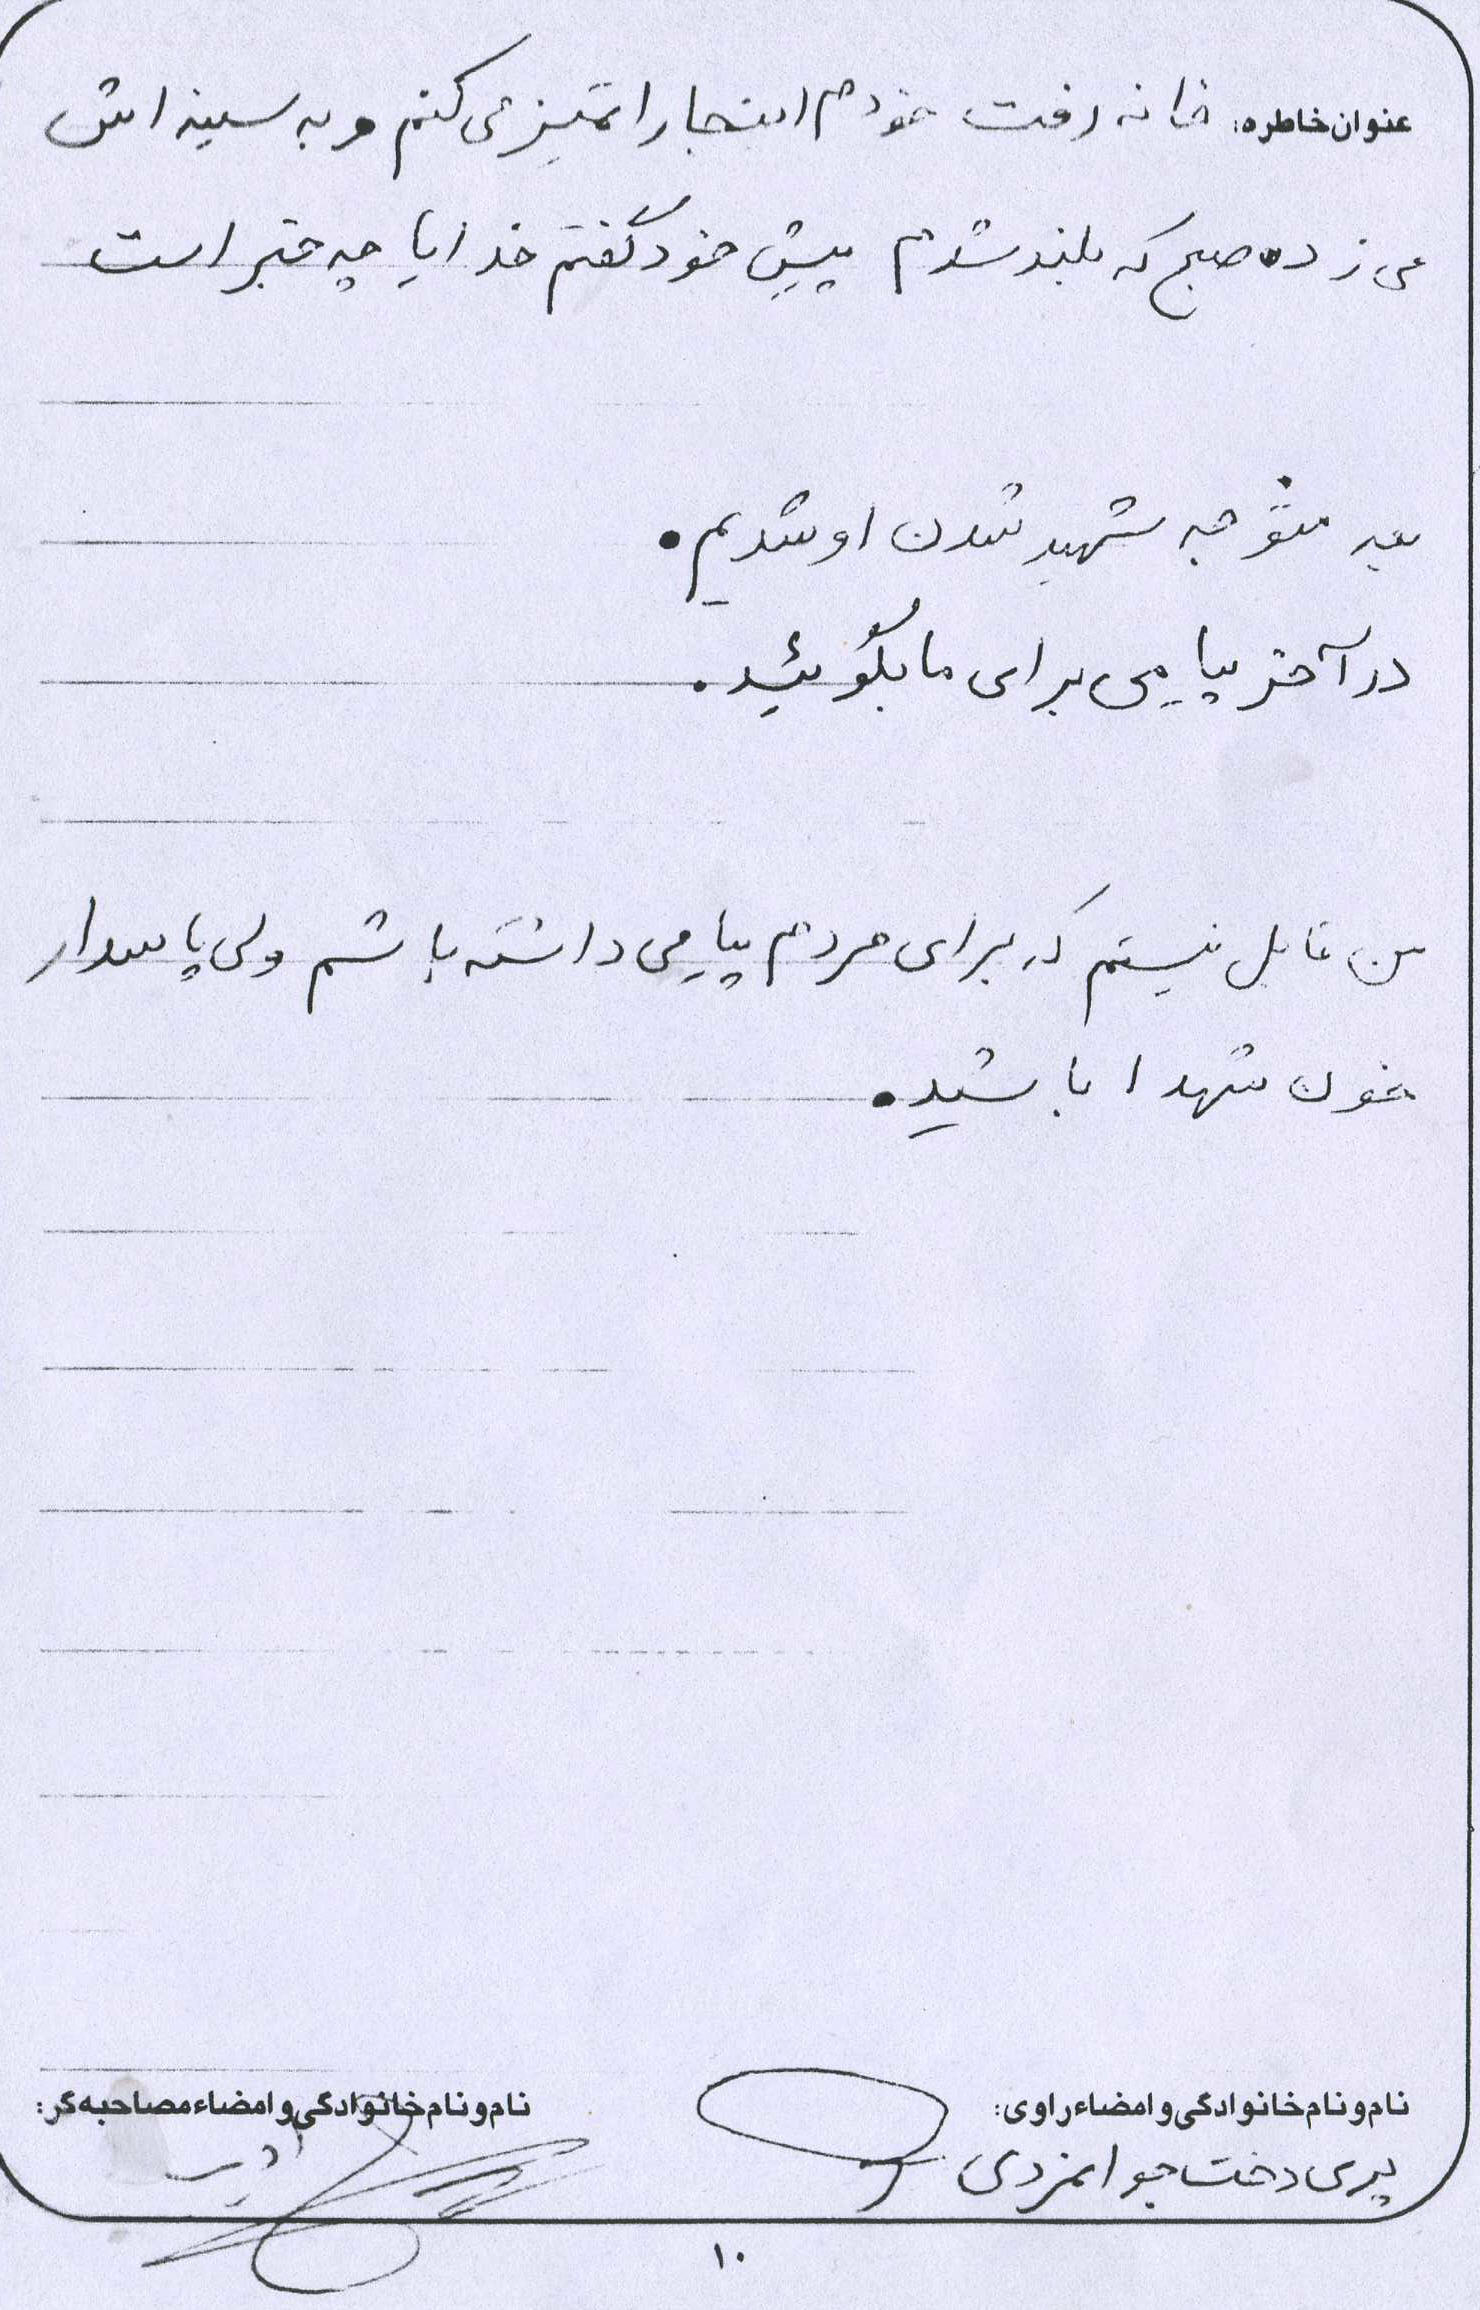 عنوان خاطره: خانه رفت خودم اینجا را تمیز می کنم و به سینه اش
می زده صبح که بلند شدم پیش خود گفتم خدایا چه خبر است
بعد متوجه شهید شدن او شدیم.
در آخر پیامی برای ما بگوئید.
من قابل نیستم که برای مردم پیامی داشته باشم ولی پاسدار
خون شهدا باشید.
نام و نام خانوادگی و امضاء راوی:
پری دخت جوانمردی
نام و نام خانوادگی و امضاء مصاحبه گر:
۱۰